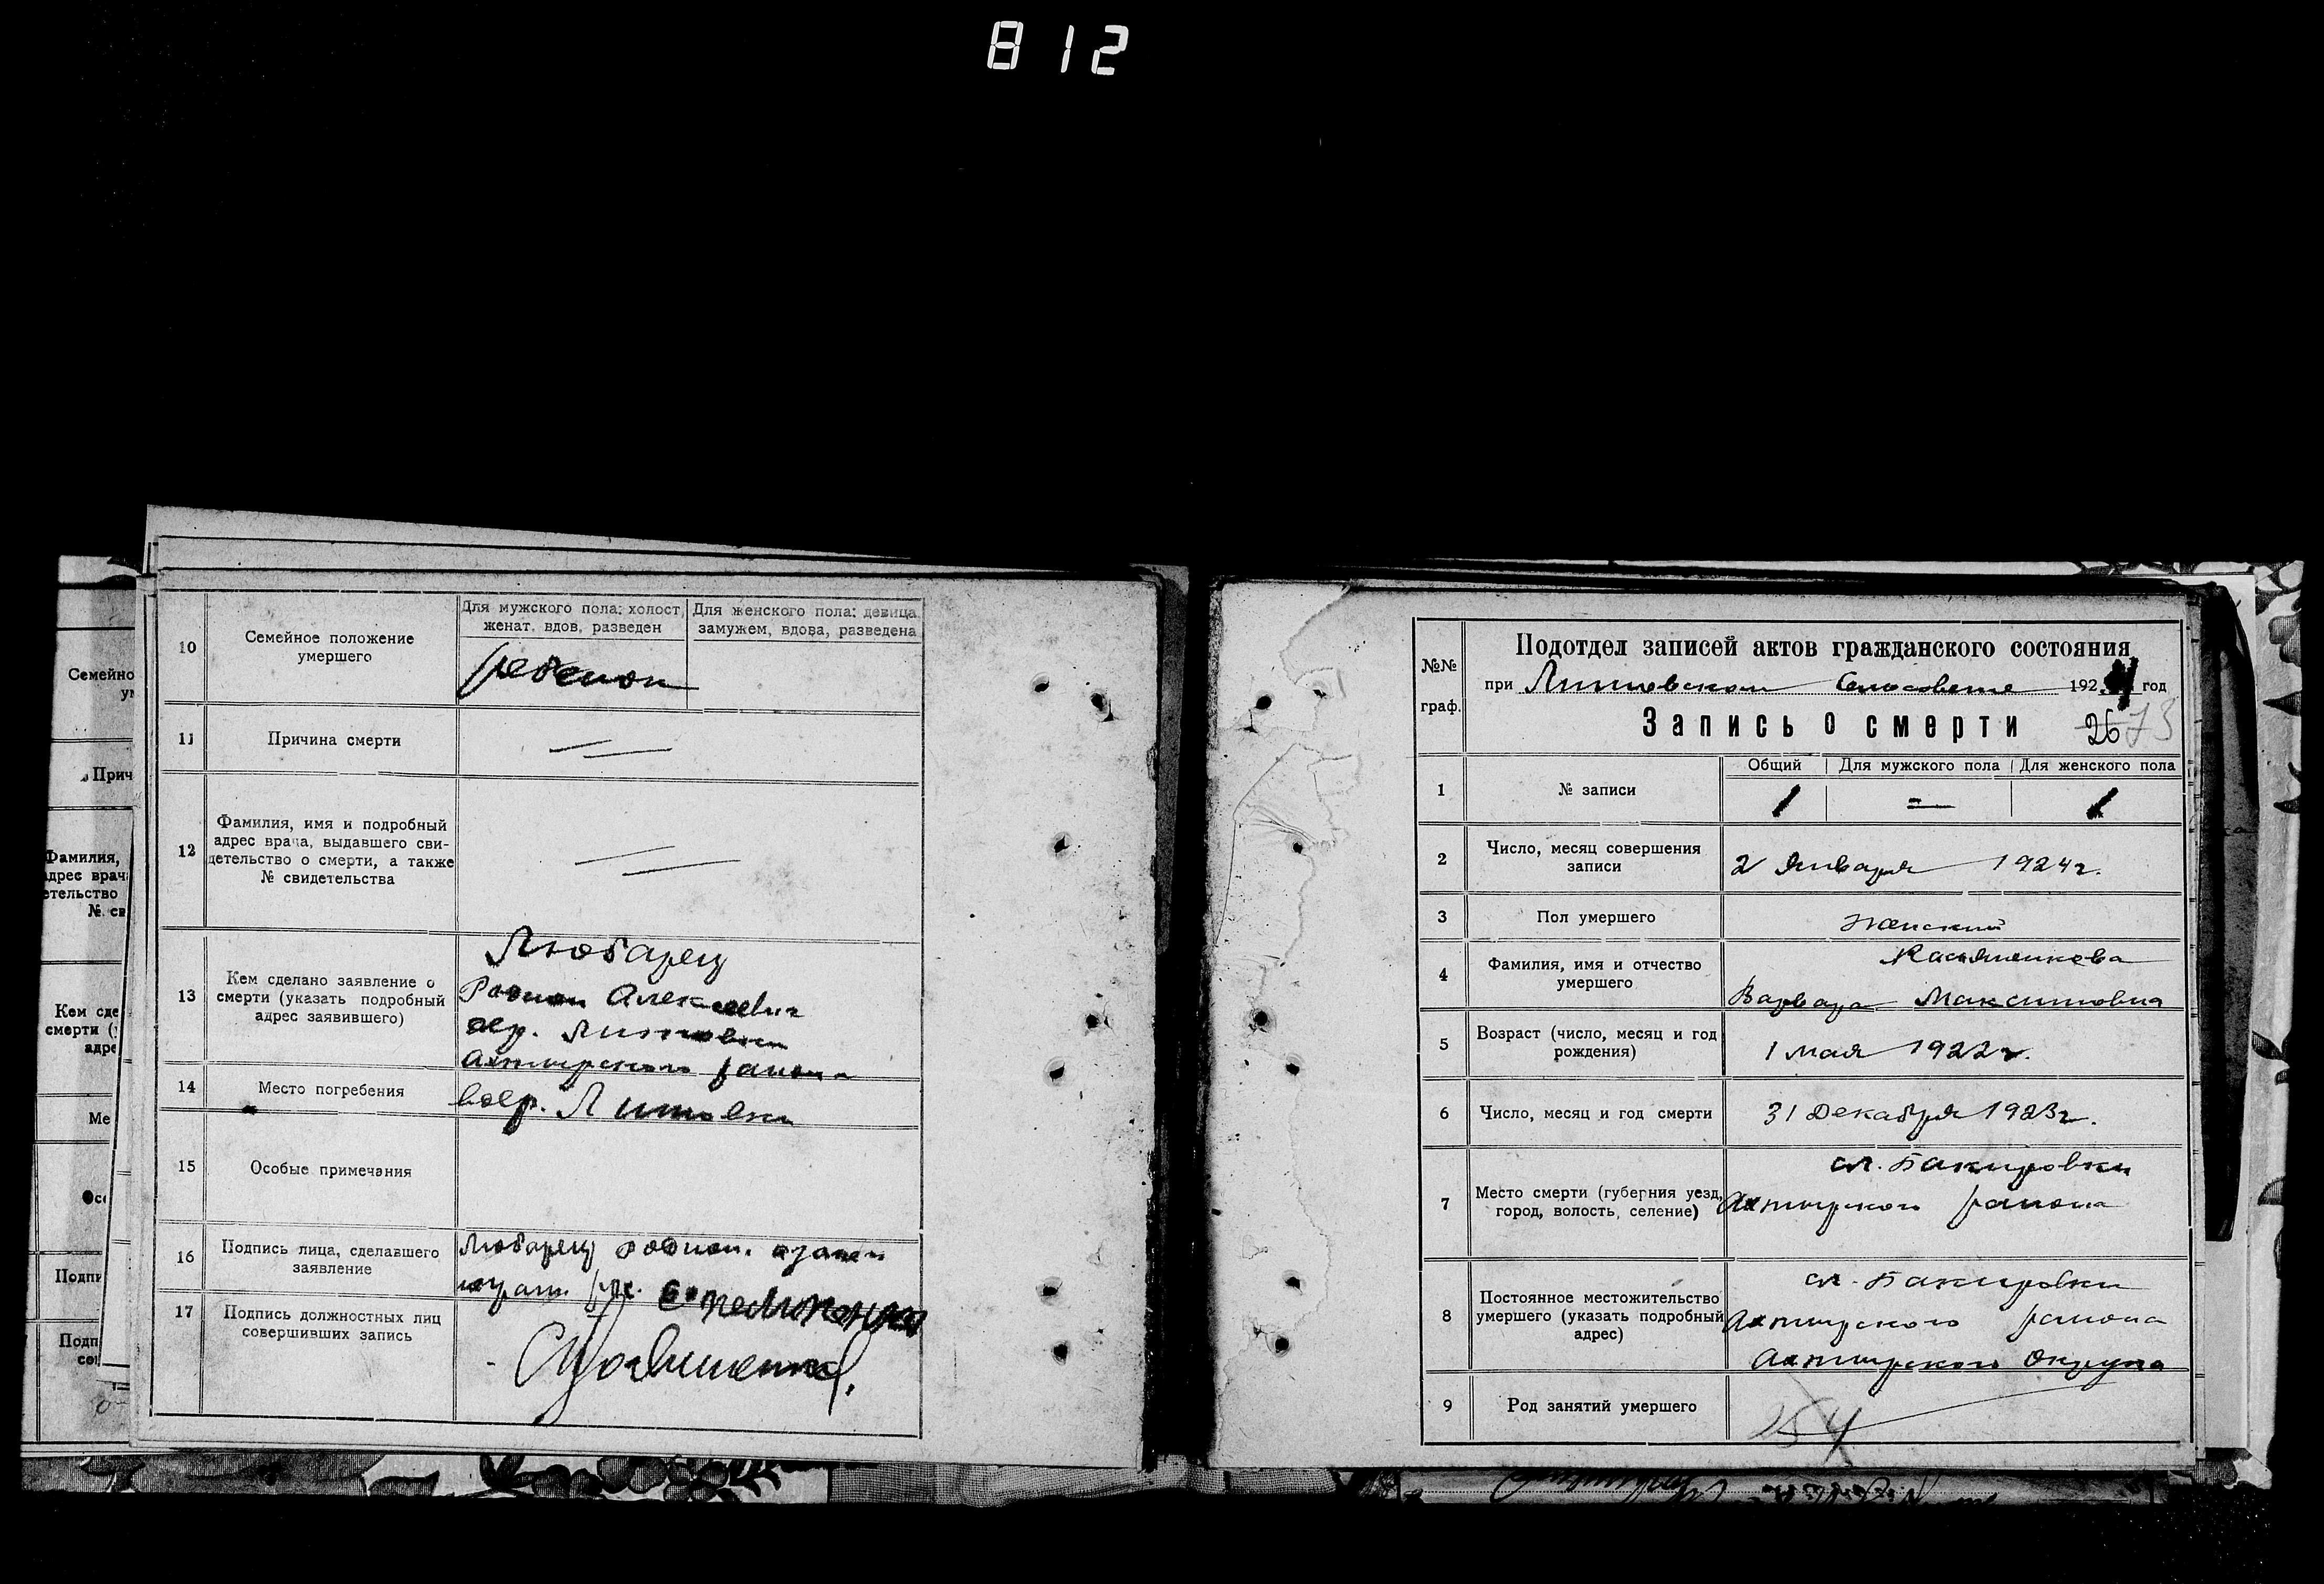 812
10
Семейное положение
умершего
Для мужского пола: холост,
женат, вдов, разведен
Для женского пола: девица
замужем, вдова, разведена
ребенок
11
Причина смерти
12
Фамилия, имя и подробный
адрес врача, выдавшего сви-
детельство о смерти, а также
№ свидетельства
13
Кем сделано заявление о
смерти (указать подробный
адрес заявившего)
Любарец
Родион Алексеевич
дер.
Ахтырского района
14
Место погребения
15
Особые примечания
16
Подпись лица, сделавшего
заявление
Любарец Родион
17
Подпись должностных лиц
совершивших запись
Семейно
Прич
Фамилия,
адрес врач
етельство
№ св
Кем сде
смерти (
адре
Ме
Осо
Подпи
Подп
со
№№
граф.
Подотдел записей актов гражданского состояния
при 1924 год
Запись о смерти 26 73
1
№ записи
Общий
Для мужского пола
Для женского пола
1
=
1
2
Число, месяц совершения
записи
2 Января 1924 г.
3
Пол умершего
Женский
4
Фамилия, имя и отчество
умершего
Касьяненкова
Варвара Максимовна
5
Возраст (число, месяц и год
рождения)
1 Мая 1922 г.
6
Число, месяц и год смерти
31 Декабря 1923 г.
7
Место смерти (губерния уезд,
город, волость, селение)
сл. Бакировки
Ахтырского района
8
Постоянное местожительство
умершего (указать подробный
адрес)
сл. Бакировки
Ахтырского района
Ахтырского Округа
9
Род занятий умершего
254